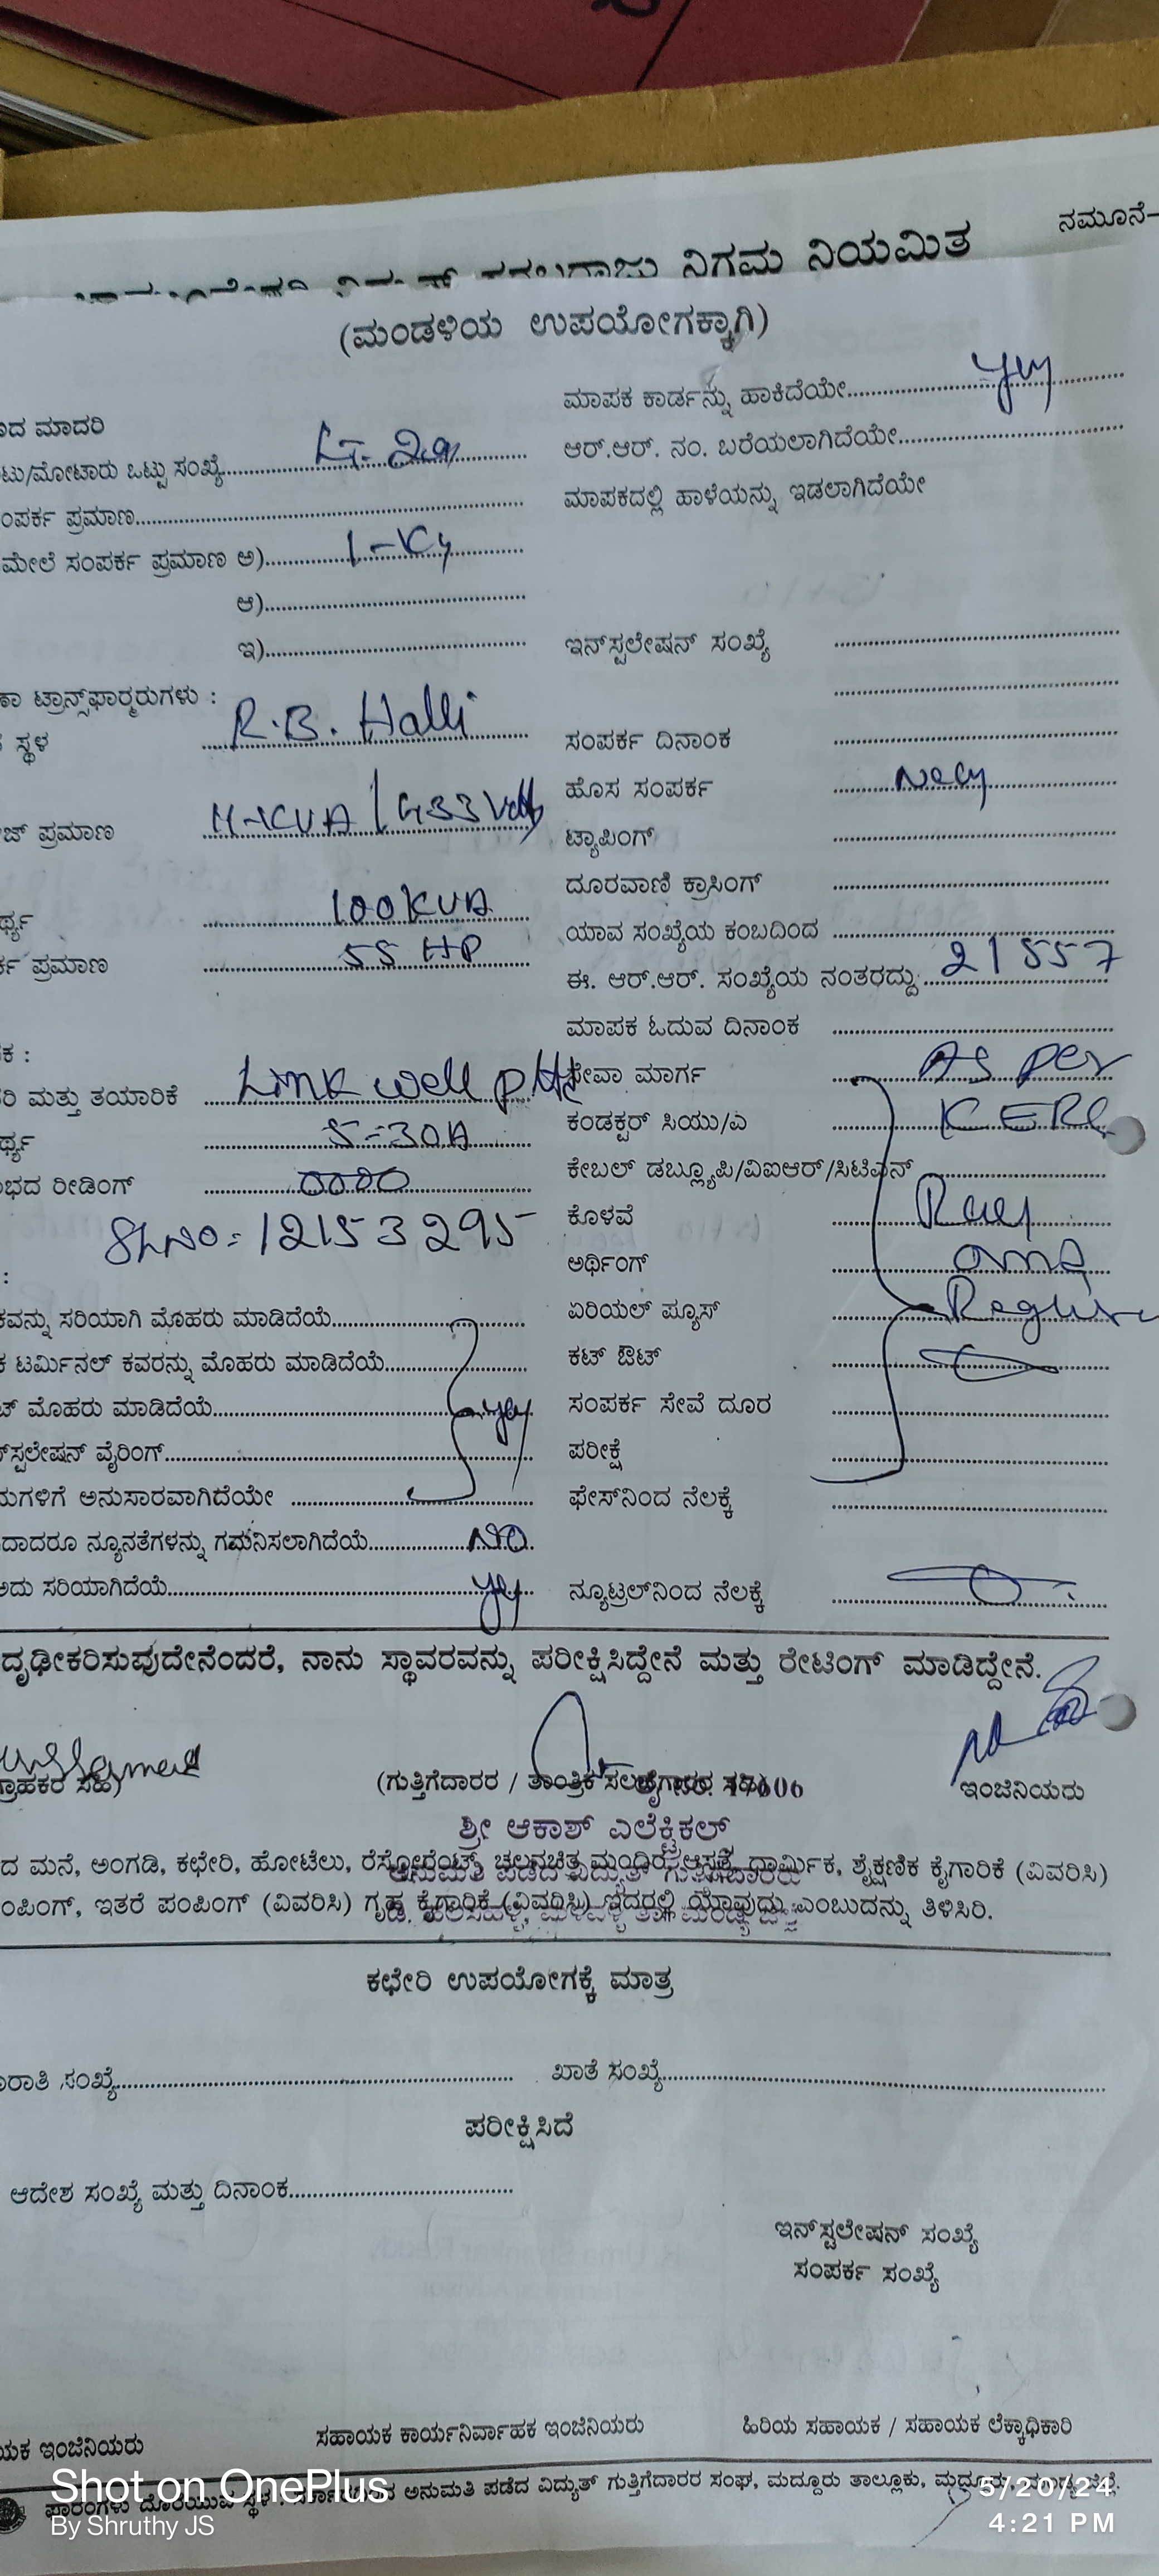 ನಮೂನೆ-
ನಿಗಮ ನಿಯಮಿತ
(ಮಂಡಳಿಯ ಉಪಯೋಗಕ್ಕಾಗಿ)
ಮಾಪಕ ಕಾರ್ಡನ್ನು ಹಾಕಿದೆಯೇ
ದ ಮಾದರಿ
ಟು/ಮೋಟಾರು ಒಟ್ಟು ಸಂಖ್ಯೆ ಆರ್.ಆರ್. ನಂ. ಬರೆಯಲಾಗಿದೆಯೇ
ಂಪರ್ಕ ಪ್ರಮಾಣ ಮಾಪಕದಲ್ಲಿ ಹಾಳೆಯನ್ನು ಇಡಲಾಗಿದೆಯೇ
ಮೇಲೆ ಸಂಪರ್ಕ ಪ್ರಮಾಣ ಅ)
ಆ)
ಇ) ಇನ್‌ಸ್ಟಲೇಷನ್ ಸಂಖ್ಯೆ
ಟ್ರಾನ್ಸ್‌ಫಾರ್ಮರುಗಳು :
ಸ್ಥಳ R.B. Halli ಸಂಪರ್ಕ ದಿನಾಂಕ
ಹೊಸ ಸಂಪರ್ಕ
ಜ್ ಪ್ರಮಾಣ ಟ್ಯಾಪಿಂಗ್
ದೂರವಾಣಿ ಕ್ರಾಸಿಂಗ್
ರ್ಥ್ಯ 100KVA ಯಾವ ಸಂಖ್ಯೆಯ ಕಂಬದಿಂದ
ರ್ಕ ಪ್ರಮಾಣ 55 HP ಈ. ಆರ್.ಆರ್. ಸಂಖ್ಯೆಯ ನಂತರದ್ದು 21557
ಮಾಪಕ ಓದುವ ದಿನಾಂಕ
ಕ : ಸೇವಾ ಮಾರ್ಗ As per
ರಿ ಮತ್ತು ತಯಾರಿಕೆ Link well ಕಂಡಕ್ಟರ್ ಸಿಯು/ಎ KERC
ರ್ಥ್ಯ 5-30A ಕೇಬಲ್ ಡಬ್ಲ್ಯೂಪಿ/ವಿಐಆರ್/ಸಿಟಿಎಸ್
ಭದ ರೀಡಿಂಗ್ 0000 ಕೊಳವೆ
Sl.No: 12153295 ಅರ್ಥಿಂಗ್
:
ಕವನ್ನು ಸರಿಯಾಗಿ ಮೊಹರು ಮಾಡಿದೆಯೆ ಏರಿಯಲ್ ಪ್ಯೂಸ್
ಕ ಟರ್ಮಿನಲ್ ಕವರನ್ನು ಮೊಹರು ಮಾಡಿದೆಯೆ ಕಟ್ ಔಟ್
ಟ್ ಮೊಹರು ಮಾಡಿದೆಯೆ ಸಂಪರ್ಕ ಸೇವೆ ದೂರ
ನ್‌ಸ್ಟಲೇಷನ್ ವೈರಿಂಗ್ ಪರೀಕ್ಷೆ
ಮಗಳಿಗೆ ಅನುಸಾರವಾಗಿದೆಯೇ ಫೇಸ್‌ನಿಂದ ನೆಲಕ್ಕೆ
ದಾದರೂ ನ್ಯೂನತೆಗಳನ್ನು ಗಮನಿಸಲಾಗಿದೆಯೆ NO
ಅದು ಸರಿಯಾಗಿದೆಯೆ ನ್ಯೂಟ್ರಲ್‌ನಿಂದ ನೆಲಕ್ಕೆ
ದೃಢೀಕರಿಸುವುದೇನೆಂದರೆ, ನಾನು ಸ್ಥಾವರವನ್ನು ಪರೀಕ್ಷಿಸಿದ್ದೇನೆ ಮತ್ತು ರೇಟಿಂಗ್ ಮಾಡಿದ್ದೇನೆ.
ಗ್ರಾಹಕರ ಸಹಿ) (ಗುತ್ತಿಗೆದಾರರ / ತಾಂತ್ರಿಕ ಇಂಜಿನಿಯರು
ಶ್ರೀ ಆಕಾಶ್ ಎಲೆಕ್ಟ್ರಿಕಲ್
ದ ಮನೆ, ಅಂಗಡಿ, ಕಛೇರಿ, ಹೋಟೆಲು, ರೆಸ್ಟೋರೆಂಟ್, ಚಲನಚಿತ್ರ ಮಂದಿರ, ಆಸ್ಪತ್ರೆ, ಧಾರ್ಮಿಕ, ಶೈಕ್ಷಣಿಕ ಕೈಗಾರಿಕೆ (ವಿವರಿಸಿ)
ಂಪಿಂಗ್, ಇತರೆ ಪಂಪಿಂಗ್ (ವಿವರಿಸಿ) ಗೃಹ ಕೈಗಾರಿಕೆ (ವಿವರಿಸಿ) ಇದರಲ್ಲಿ ಯಾವುದು ಎಂಬುದನ್ನು ತಿಳಿಸಿರಿ.
ಕಛೇರಿ ಉಪಯೋಗಕ್ಕೆ ಮಾತ್ರ
ರಾತಿ ಸಂಖ್ಯೆ ಖಾತೆ ಸಂಖ್ಯೆ
ಪರೀಕ್ಷಿಸಿದೆ
ಆದೇಶ ಸಂಖ್ಯೆ ಮತ್ತು ದಿನಾಂಕ
ಇನ್‌ಸ್ಟಲೇಷನ್ ಸಂಖ್ಯೆ
ಸಂಪರ್ಕ ಸಂಖ್ಯೆ
ಯಕ ಇಂಜಿನಿಯರು ಸಹಾಯಕ ಕಾರ್ಯನಿರ್ವಾಹಕ ಇಂಜಿನಿಯರು ಹಿರಿಯ ಸಹಾಯಕ / ಸಹಾಯಕ ಲೆಕ್ಕಾಧಿಕಾರಿ
ಫಾರಂಗಳು ದೊರೆಯುವ ಸ್ಥಳ : ಅನುಮತಿ ಪಡೆದ ವಿದ್ಯುತ್ ಗುತ್ತಿಗೆದಾರರ ಸಂಘ, ಮದ್ದೂರು ತಾಲ್ಲೂಕು,
Shot on OnePlus
By Shruthy JS
5/20/24
4:21 PM